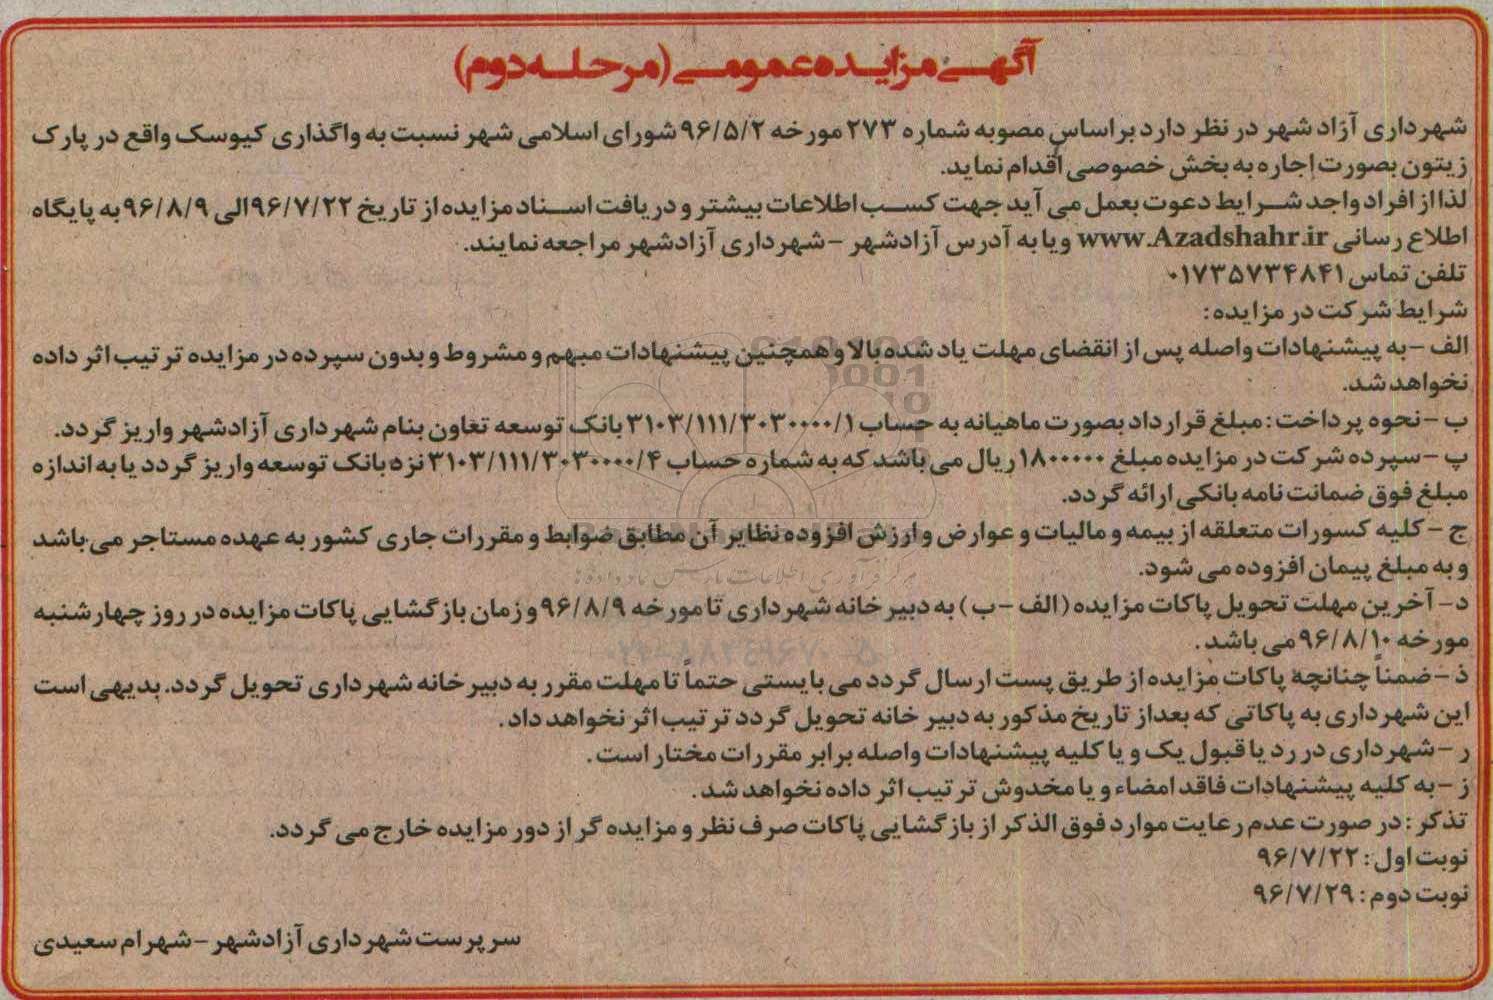 آگهی مزایده عمومی (مرحله دوم)
شهرداری آزاد شهر در نظر دارد براساس مصوبه شماره ۲۷۳ مورخه ۹۶/۵/۲ شورای اسلامی شهر نسبت به واگذاری کیوسک واقع در پارک
زیتون بصورت اجاره به بخش خصوصی اقدام نماید.
لذا از افراد واجد شرایط دعوت بعمل می آید جهت کسب اطلاعات بیشتر و دریافت اسناد مزایده از تاریخ ۹۶/۷/۲۲ الی ۹۶/۸/۹ به پایگاه
اطلاع رسانی www.Azadshahr.ir ویا به آدرس آزادشهر - شهرداری آزادشهر مراجعه نمایند.
تلفن تماس ۰۱۷۳۵۷۳۴۸۴۱
شرایط شرکت در مزایده:
الف - به پیشنهادات واصله پس از انقضای مهلت یاد شده بالا و همچنین پیشنهادات مبهم و مشروط و بدون سپرده در مزایده ترتیب اثر داده
نخواهد شد.
ب - نحوه پرداخت: مبلغ قرارداد بصورت ماهیانه به حساب ۳۱۰۳/۱۱۱/۳۰۳۰۰۰۰/۱ بانک توسعه تعاون بنام شهرداری آزادشهر واریز گردد.
پ - سپرده شرکت در مزایده مبلغ ۱۸۰۰۰۰۰ ریال می باشد که به شماره حساب ۳۱۰۳/۱۱۱/۳۰۳۰۰۰۰/۴ نزد بانک توسعه واریز گردد یا به اندازه
مبلغ فوق ضمانت نامه بانکی ارائه گردد.
ج - کلیه کسورات متعلقه از بیمه و مالیات و عوارض و ارزش افزوده نظایر آن مطابق ضوابط و مقررات جاری کشور به عهده مستاجر می باشد
و به مبلغ پیمان افزوده می شود.
د- آخرین مهلت تحویل پاکات مزایده (الف - ب) به دبیرخانه شهرداری تا مورخه ۹۶/۸/۹ و زمان بازگشایی پاکات مزایده در روز چهارشنبه
مورخه ۹۶/۸/۱۰ می باشد.
ذ - ضمناً چنانچه پاکات مزایده از طریق پست ارسال گردد می بایستی حتماً تا مهلت مقرر به دبیرخانه شهرداری تحویل گردد. بدیهی است
این شهرداری به پاکاتی که بعداز تاریخ مذکور به دبیر خانه تحویل گردد ترتیب اثر نخواهد داد.
ر - شهرداری در رد یا قبول یک و یا کلیه پیشنهادات واصله برابر مقررات مختار است.
ز - به کلیه پیشنهادات فاقد امضاء و یا مخدوش ترتیب اثر داده نخواهد شد.
تذکر: در صورت عدم رعایت موارد فوق الذکر از بازگشایی پاکات صرف نظر و مزایده گر از دور مزایده خارج می گردد.
نوبت اول: ۹۶/۷/۲۲
نوبت دوم: ۹۶/۷/۲۹
سرپرست شهرداری آزادشهر - شهرام سعیدی